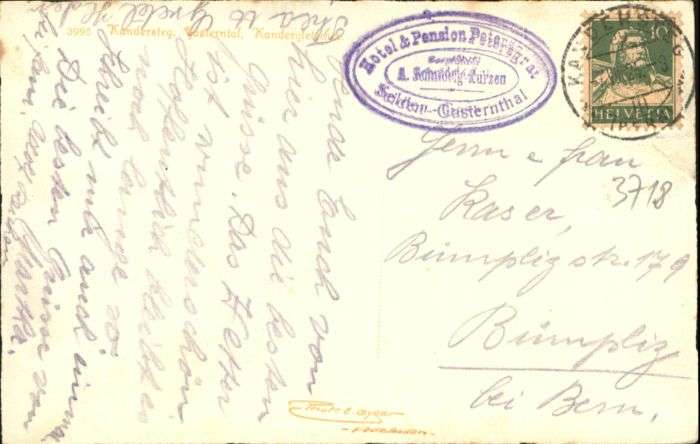 3995 Kandersteg, Gasterntal, Kandergletscher
Hotel & Pension Petersgrat
Selden-Gasternthal
KANDERSTEG
10
HELVETIA
3718
Herrn e frau
Kaser,
Bümplizstr. 179
Bümpliz
bei Bern.
Sende Euch von
hier aus die besten
Grüsse. Das Wetter
ist wunderschön
Hofentlich bleibt es
noch lange so
Schreibt mir auch einmal
Die besten Grüsse von
Martha.